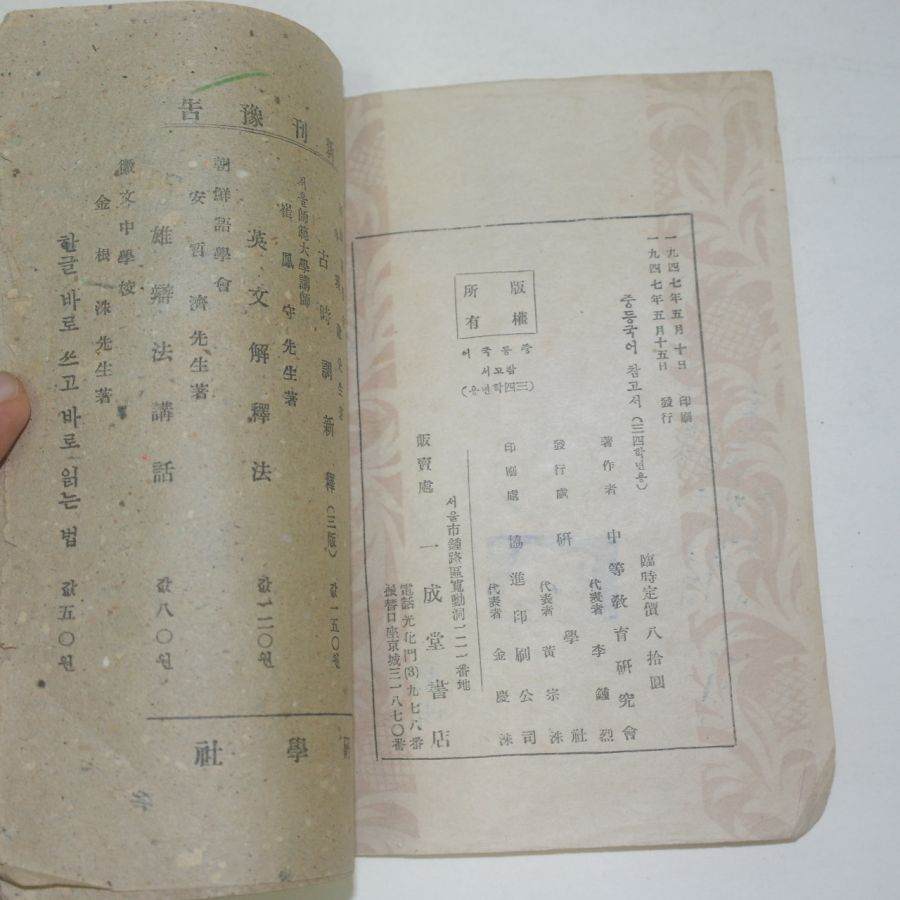 一九四七年五月十日 印刷
一九四七年五月十五日 發行
중등국어 참고서 (三四학년용)
臨時定價 八拾圓
版權
所有
중등국어
참고서
(三四학년용)
著作者 中等敎育硏究會
代表者 李鍾烈
發行處 硏學社
代表者 黃宗洙
印刷處 協進印刷公司
代表者 金慶洙
서울市鍾路區寬勳洞一一一番地
販賣處 一成堂書店
電話光化門(3)九七八番
振替口座京城三一八七〇番
刊豫告
古時調新釋 (三版) 값一五〇원
서울師範大學講師
崔鳳守先生著
英文解釋法 값一二〇원
朝鮮語學會
安哲濟先生著
雄辯法講話 값八〇원
徽文中學校
金根洙先生著
한글 바로 쓰고 바로 읽는 법 값五〇원
學社